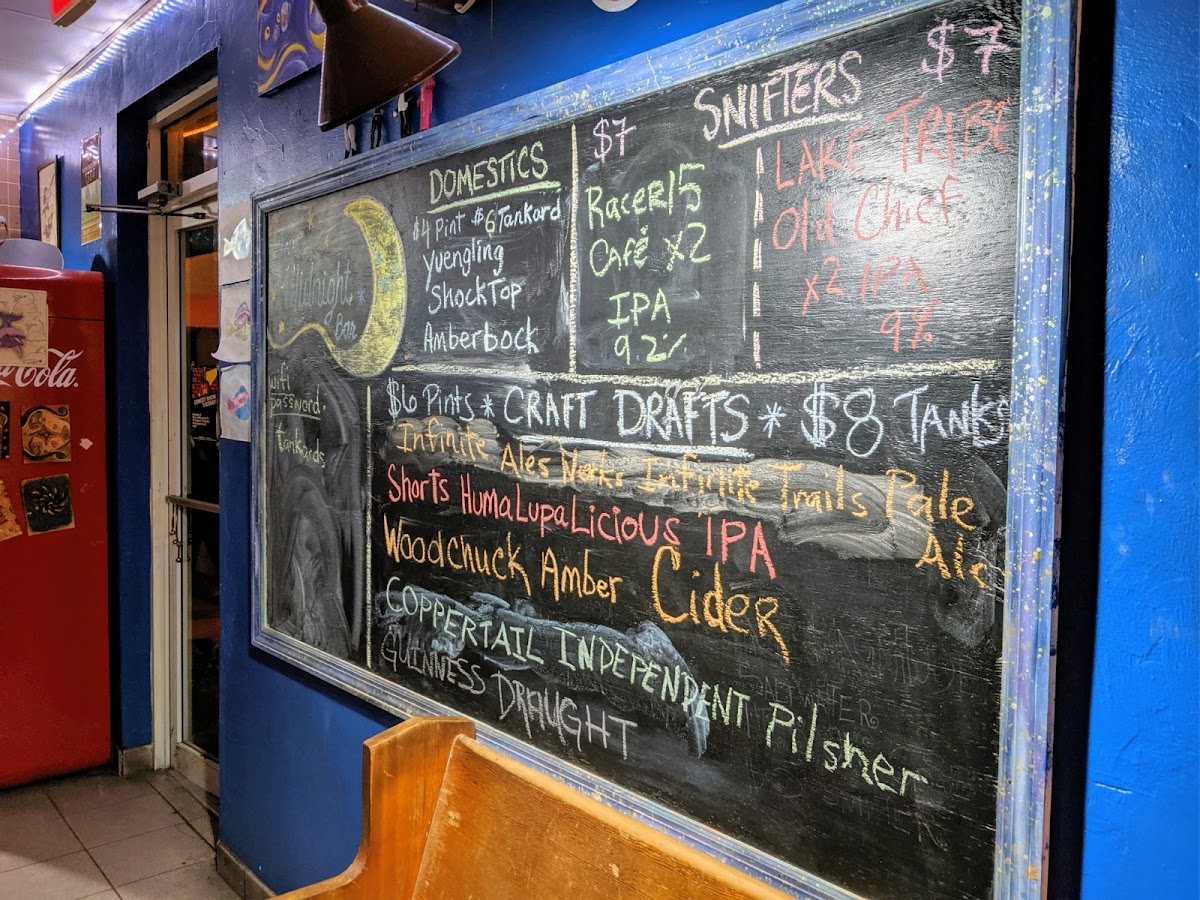 Midnight
Bar
wifi
password.
tankards
DOMESTICS
$4 Pint $6 Tankard
Yuengling
ShockTop
Amberbock
SNIFTERS
$7
Racer 15
Café x2
IPA
9.2%
$7
LAKE TRIBE
Old Chief
x2 IPA
9%
$6 Pints * CRAFT DRAFTS * $8 TANKS
Infinite Ales Works Infinite Trails Pale
Ale
Shorts HumaLupaLicious IPA
Woodchuck Amber Cider
COPPERTAIL INDEPENDENT Pilsner
GUINNESS DRAUGHT
Cola